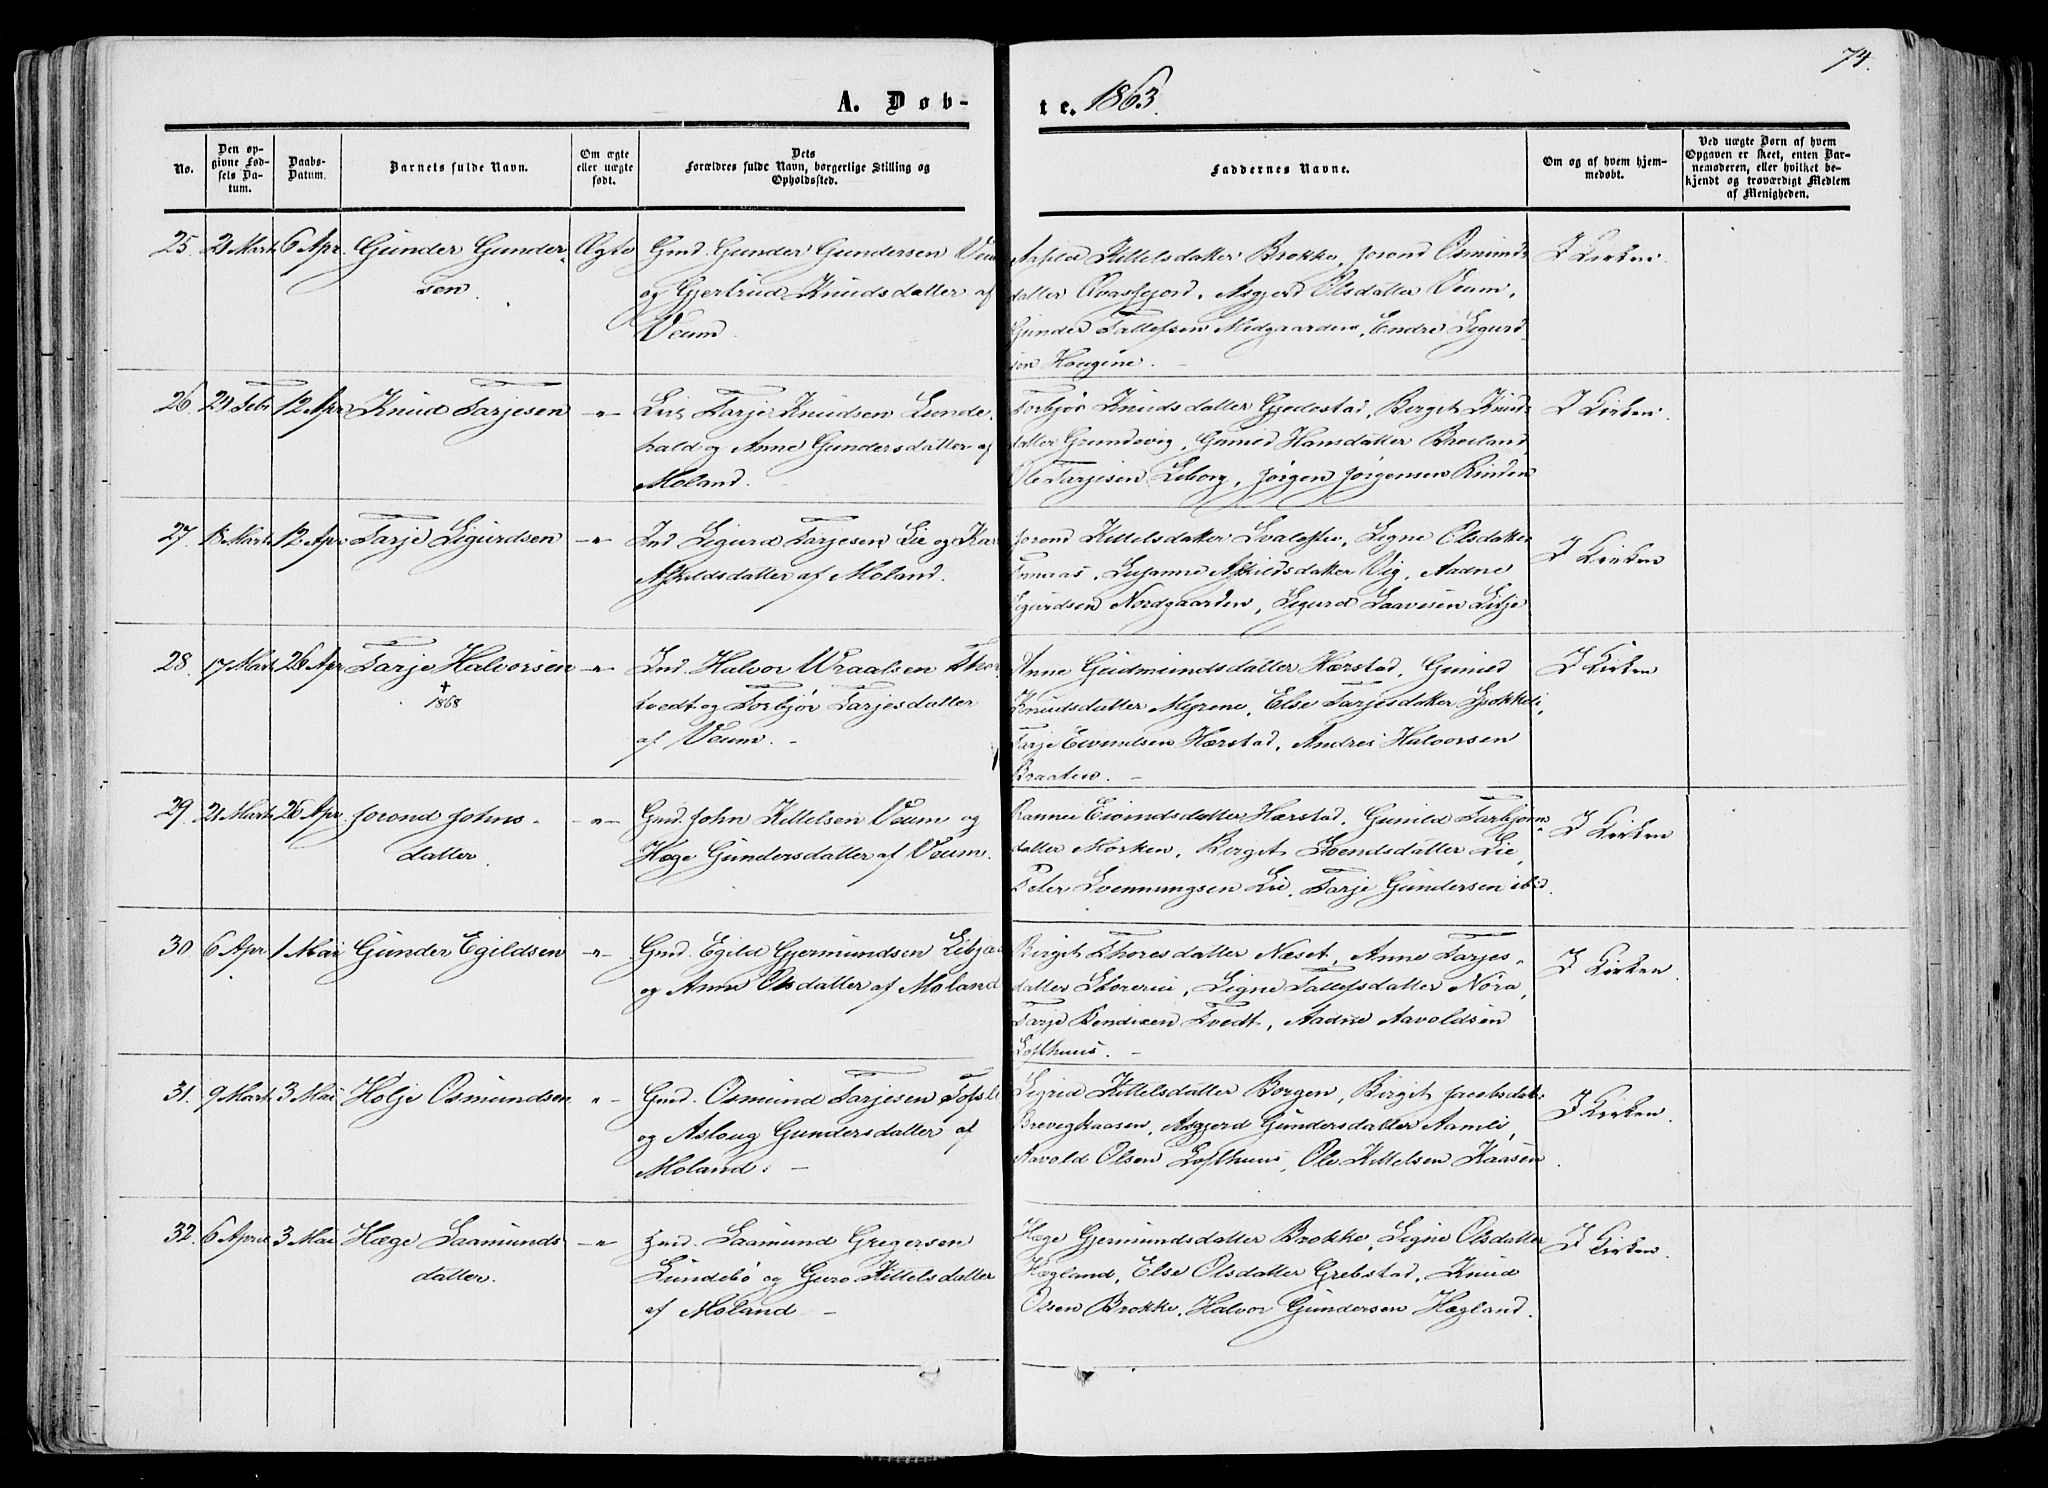 74.
A. Døb-
te. 1863.
No.
Den op-
givne Fød-
sels Da-
tum.
Daabs-
Datum.
Barnets fulde Navn.
Om ægte
eller uægte
født.
Dets
Forældres fulde Navn, borgerlige Stilling og
Opholdssted.
Faddernes Navne.
Om og af hvem hjem-
medøbt.
Ved uægte Børn af hvem
Opgaven er skeet, enten Bar-
nemoderen, eller hvilket be-
kjendt og troværdigt Medlem
af Menigheden.
25. 21 Marts 6 Apr. Gunder Gunder-
sen.
Ægte
Gmd. Gunder Gundersen Veum
og Gjertrud Knudsdatter af
Veum.
Kittelsdatter Brokke, Jorond Osmunds-
datter Qvasfjord, Asgjerd Olsdatter Veum,
Gunder Tallefsen Midgaarden, Endre Sigurd-
sen Haugine. -
I Kirken.
26. Febr 12 Apr Knud Tarjesen
-"-
Tarje Knudsen Lunde-
hald og Anne Gundersdatter af
Moland.
Torbjør Knudsdatter Gjedestad, Berget Knuds-
datter Grundvig, Gunild Hansdatter Brosland,
Ole Tarjesen Liborg, Jørgen Jørgensen Rinden
I Kirken.
27. 15 Marts 12 Apr Tarje Sigurdsen
-"-
Ind Sigurd Tarjesen Lie og Kari
Askildsdatter af Moland.
Jorond Kittelsdatter Svalestu, Signe Olsdatter
Susanne Askildsdatter Vig, Aadne
Sigurdsen Nordgaarden, Sigurd Saavesen Libje
I Kirken
28. 17 Marts 26 Apr Tarje Halvorsen
†
1868
-"-
Ind. Halvor Wraalsen Thor-
tvedt og Torbjør Tarjesdatter
af Veum. -
Anne Gudmundsdatter Hærstad, Gunild
Knudsdatter Myrene, Else Tarjesdatter
Tarje Eivindsen Hærstad, Andres Halvorsen
Braaten. -
I Kirken
29. 21 Marts 26 Apr. Jorond Johns-
datter.
-"-
Gmd. John Kittelsen Veum og
Hæge Gundersdatter af Veum.
Rannei Eivindsdatter Hærstad, Gunild Tarbjørns-
datter Morken, Berget Svendsdatter Lie,
Peter Svennungsen Lie, Tarje Gundersen ibid.
I Kirken
30 6 Apr 1 Mai Gunder Egildsen
-"-
Gmd. Egild Gjermundsen Libja
og Anne Olsdatter af Moland
Birgit Thoresdatter Næset, Anne Tarjes-
datter Storerie, Signe Tallefsdatter Nøra,
Tarje Bendixen Tvedt, Aadne Aavoldsen
Lofthuus. -
I Kirken.
31. 9 Marts 3 Mai Holje Osmundsen
"-
Gmd. Osmund Tarjesen Tofsli
og Aslaug Gundersdatter af
Moland. -
Sigrid Kittelsdatter Borgen, Birgit Jacobsdat-
Brevigkaasen, Asgjerd Gundersdatter Aamli,
Aavold Olsen Lofthuus, Ole Kittelsen Kaasen.
I Kirken.
32. 6 April 3 Mai Hæge Saamunds-
datter.
-"-
Saamund Gregersen
Lundebø og Guro Kittelsdatter
af Moland -
Hæge Gjermundsdatter Brokke, Signe Olsdatter
Hægland, Else Olsdatter Grebstad, Knud
Olsen Brokke, Halvor Gundersen Hægland.
I Kirken.